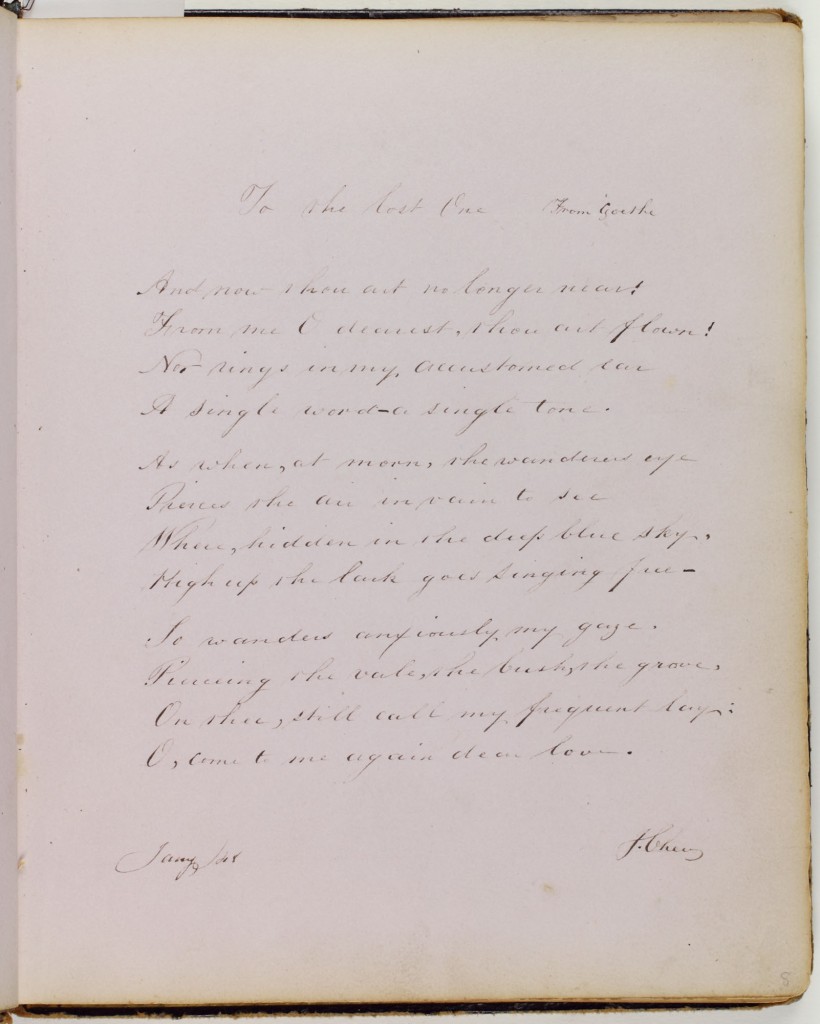 To the lost One From Goethe
And now thou art no longer near!
From me O dearest, thou art flown!
Nor rings in my, accustomed ear
A single word—a single tone.
As when, at morn, the wanderers eye
Pierces the air in vain to see
Where, hidden in the deep blue sky,
High up the lark goes singing free—
So wanders anxiously my gaze.
Piercing the vale, the bush, the grove,
On thee, still call my frequent lay:
O, come to me again dear love.
Jany /48
J. Chew
8